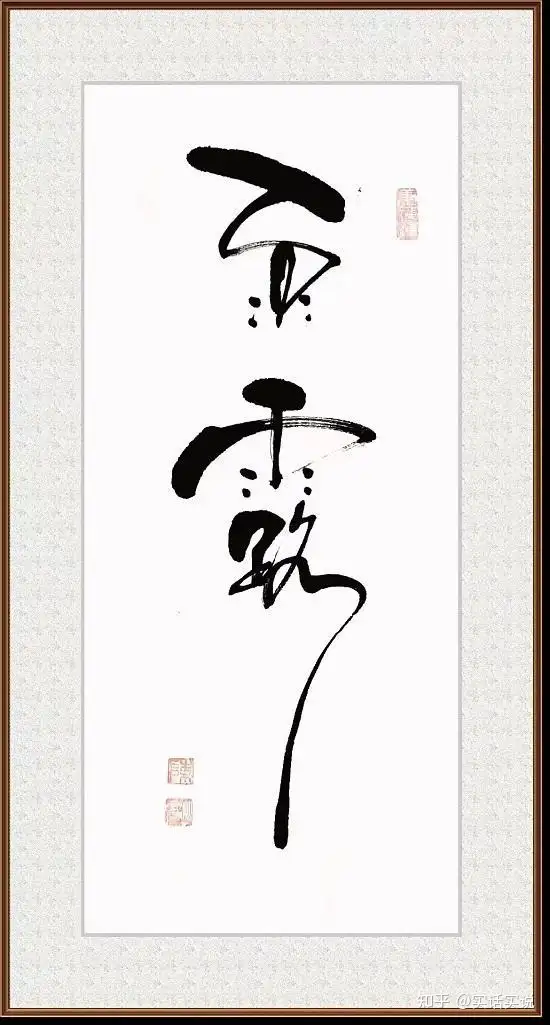 雨露
知乎 @实话实说